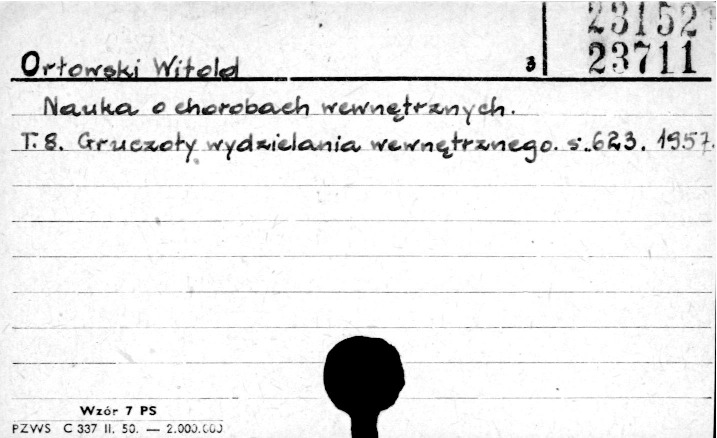 23152
23711
Orłowski Witold 3
Nauka o chorobach wewnętrznych.
T. 8. Gruczoły wydzielania wewnętrznego. s. 623. 1957.
Wzór 7 PS
PZWS C 337 II. 50. — 2.000.000